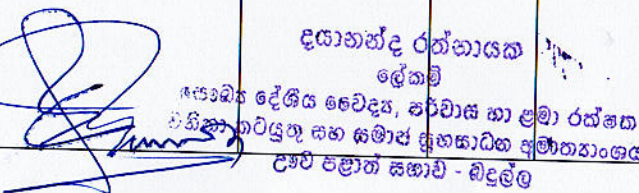 දයානන්ද රත්නායක
ලේකම්
සෞඛ්‍ය දේශීය වෛද්‍ය, පරිවාස හා ළමා රක්ෂක
වනිතා කටයුතු සහ සමාජ සුභසාධන අමාත්‍යාංශය
ඌව පළාත් සභාව - බදුල්ල